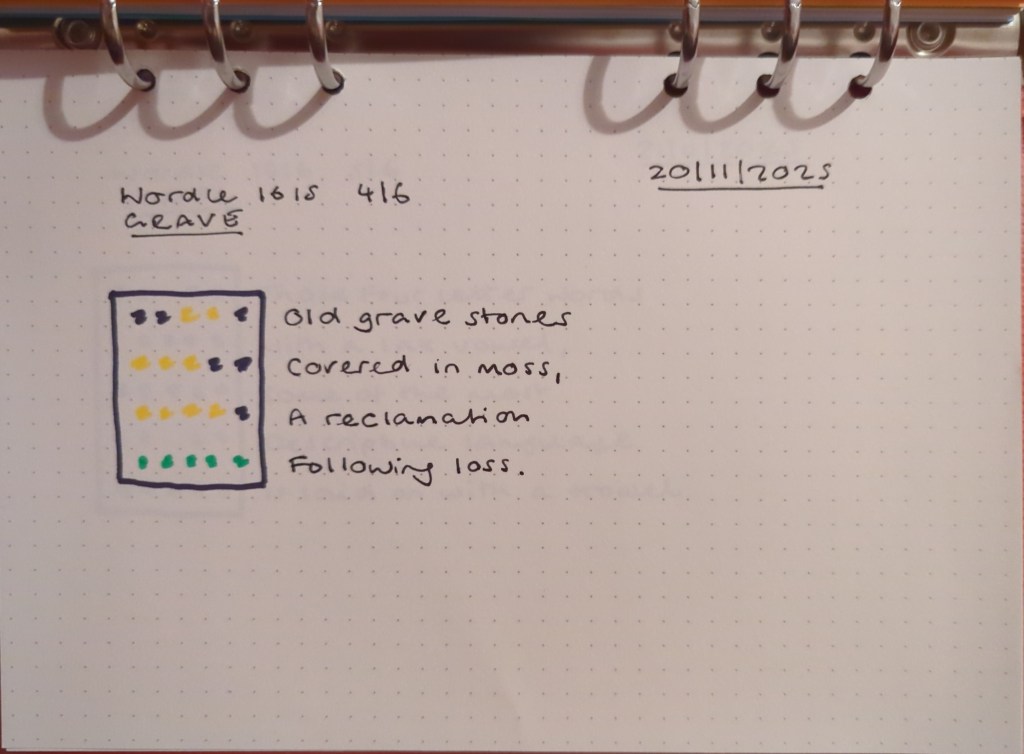 20/11/2025
Wordle 1615 4/6
GRAVE
Old grave stones
Covered in moss,
A reclanation
Following loss.